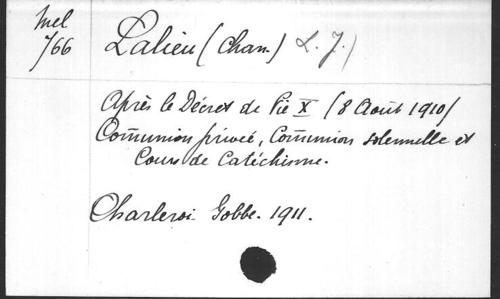 Mel
766
Lalieu (Chan.) L. J.)
Après le Décret de Pie X (8 Août 1910)
Communion privée, Communion solennelle et
Cours de Catéchisme.
Charleroi Gobbe. 1911.